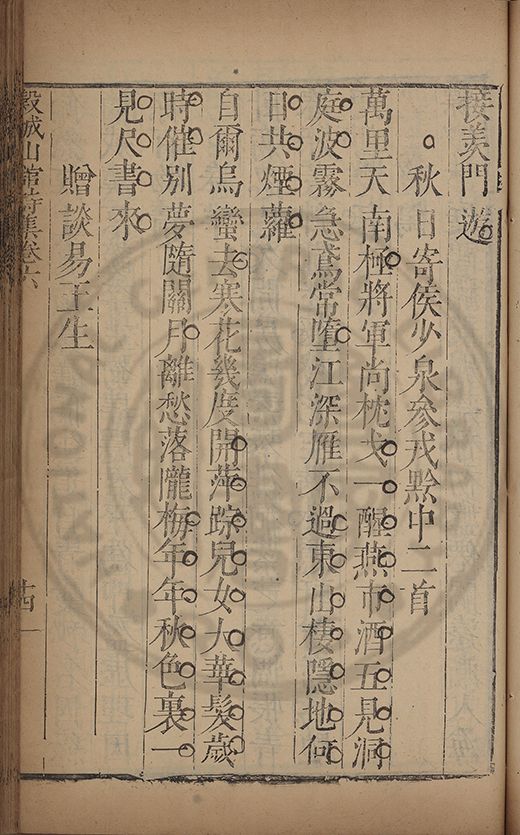 接羨門遊
秋日寄侯少泉參戎黔中二首
萬里天南極將軍尚枕戈一醒燕市酒五見洞
庭波霧急鳶常墮江深雁不過東山棲隱地何
日共煙蘿
自爾烏蠻去寒花幾度開萍踪兒女大華髮歲
時催別夢隨關月離愁落隴梅年年秋色裏一
見尺書來
贈談易王生
穀城山館詩集卷六